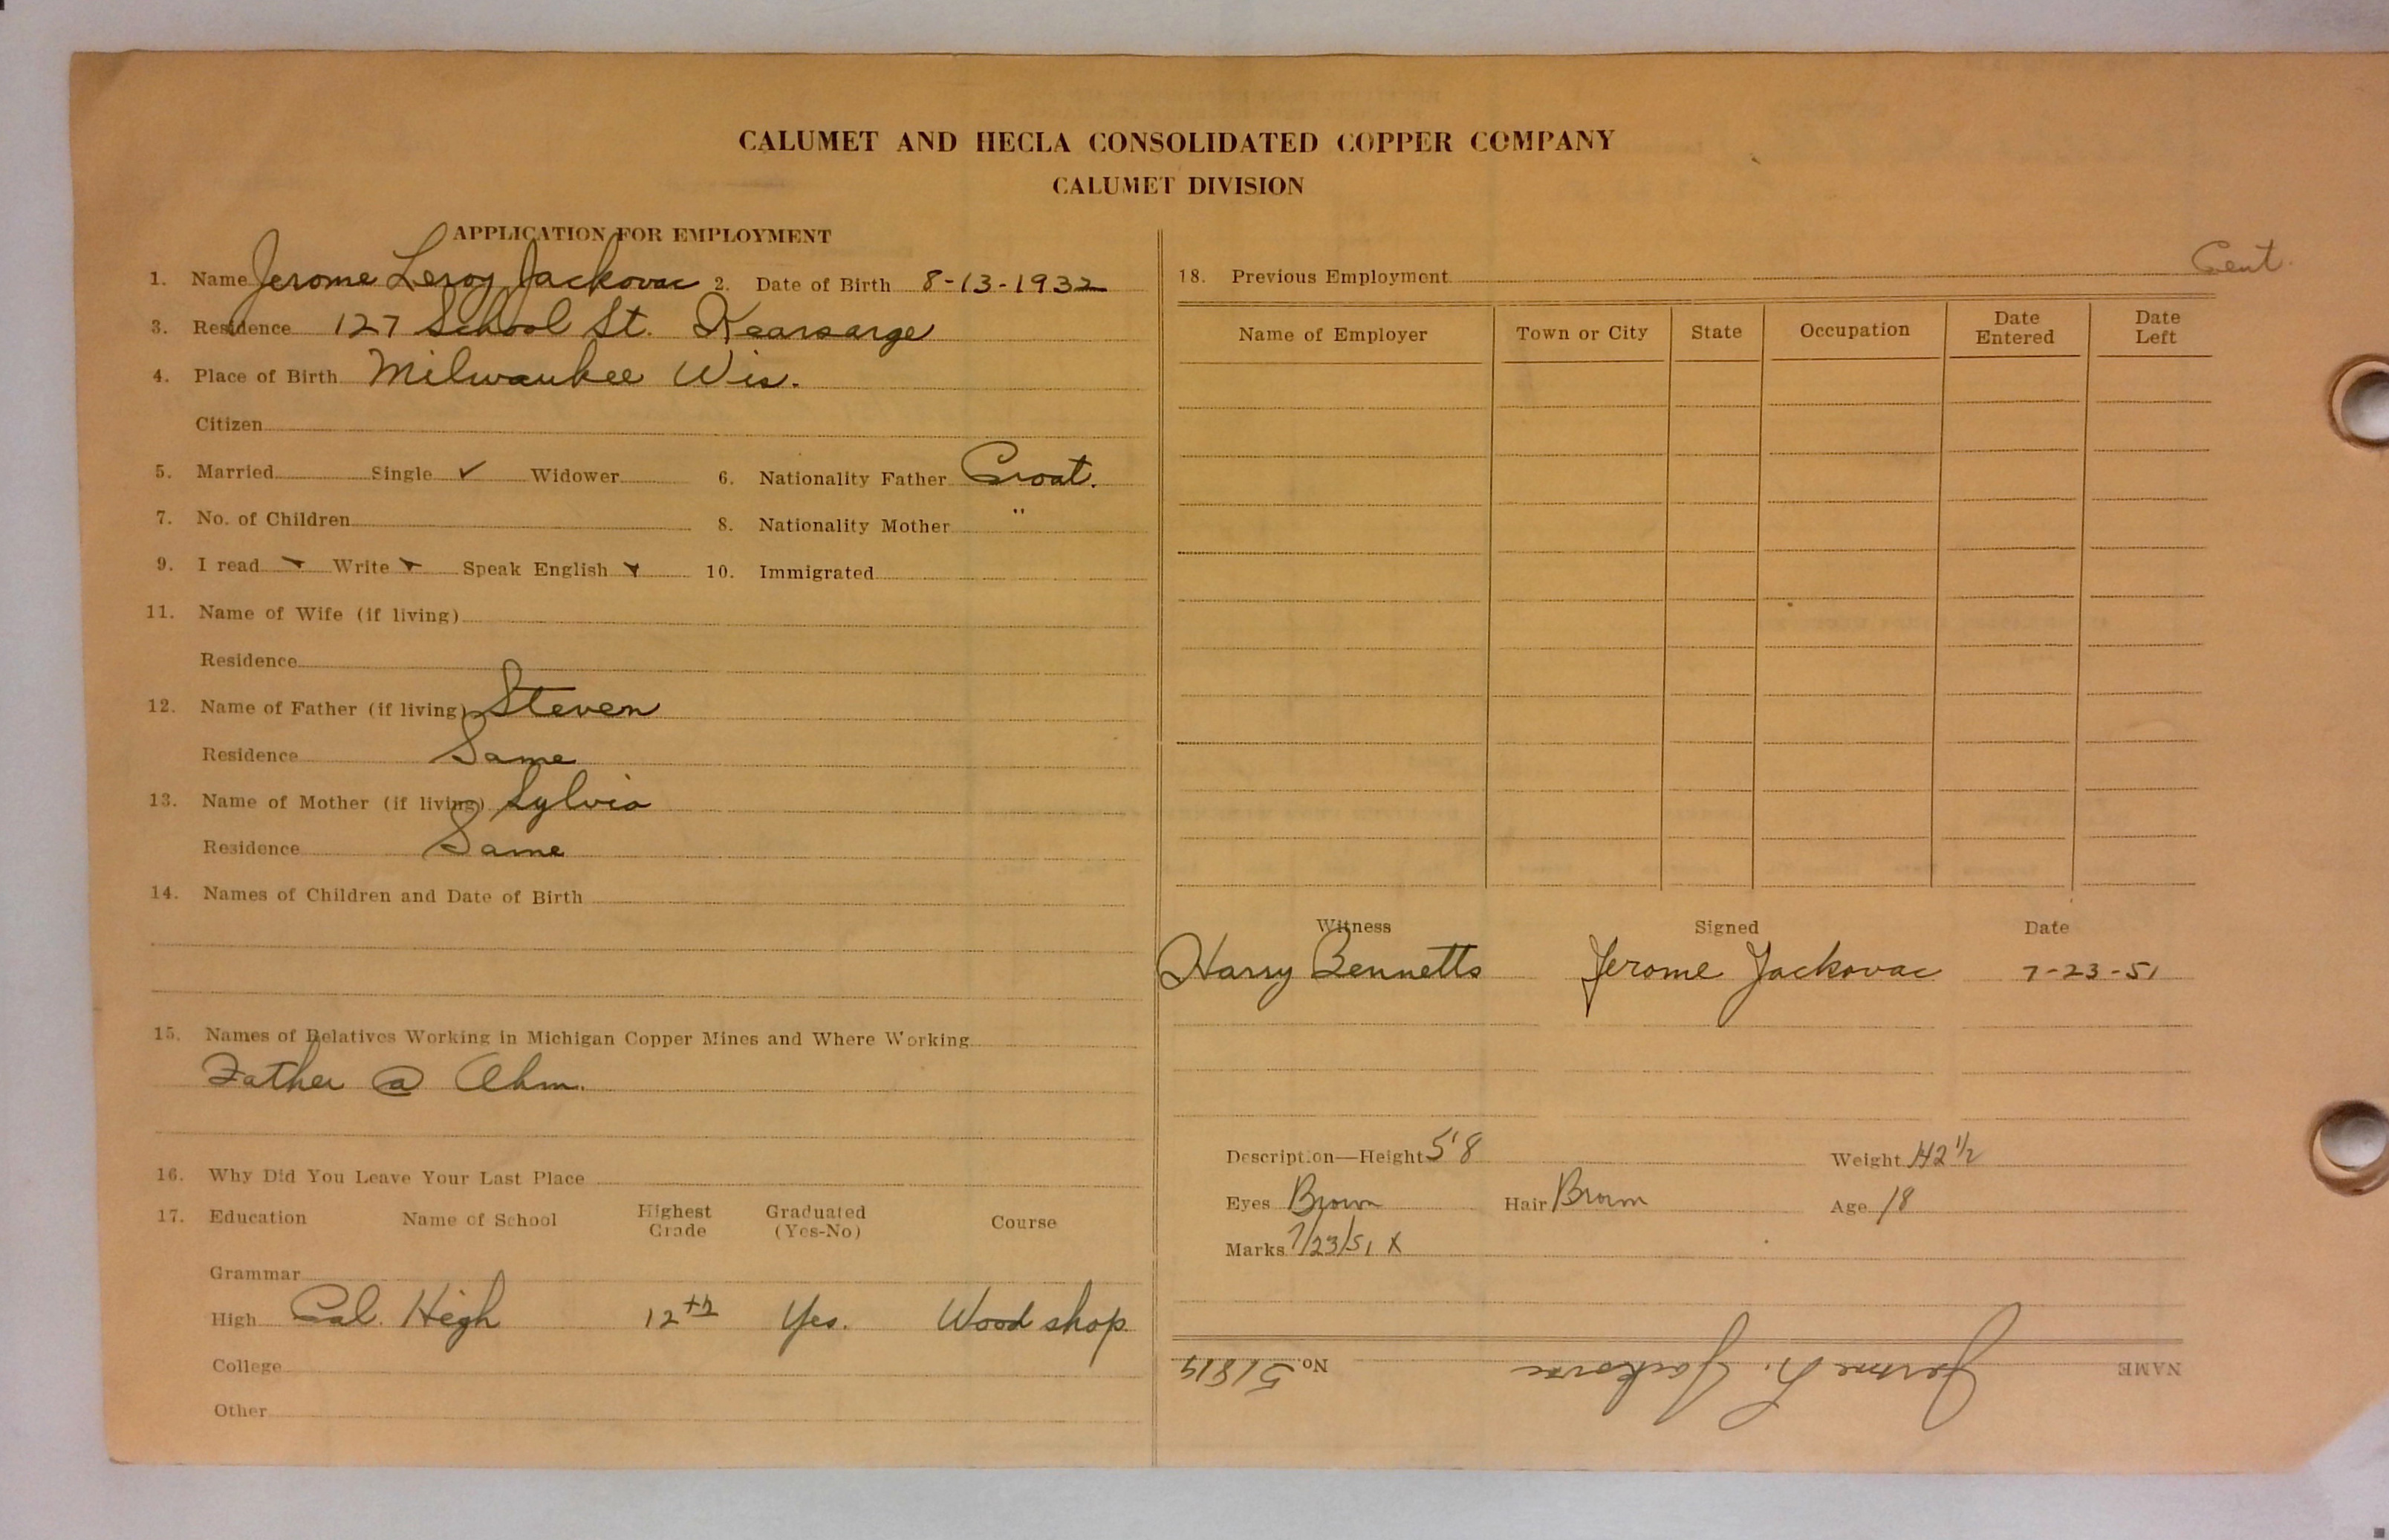 CALUMET AND HECLA CONSOLIDATED COPPER COMPANY
CALUMET DIVISION
APPLICATION FOR EMPLOYMENT
1. Name Jerome Leroy Jackovac 2. Date of Birth 8-13-1932
3. Residence 127 School St. Kearsarge
4. Place of Birth Milwaukee Wis.
Citizen
5. Married Single ✓ Widower 6. Nationality Father Croat.
7. No. of Children 8. Nationality Mother "
9. I read ✓ Write ✓ Speak English ✓ 10. Immigrated
11. Name of Wife (if living)
Residence
12. Name of Father (if living) Steven
Residence Same
13. Name of Mother (if living) Sylvia
Residence Same
14. Names of Children and Date of Birth
15. Names of Relatives Working in Michigan Copper Mines and Where Working
Father @ Ahm.
16. Why Did You Leave Your Last Place
17. Education Name of School Highest Grade Graduated (Yes-No) Course
Grammar
High Cal. High 12th Yes. Wood shop
College
Other
Cent.
18. Previous Employment
Name of Employer Town or City State Occupation Date Entered Date Left
Witness Signed Date
Harry Bennetts Jerome Jackovac 7-23-51
Description—Height 5'8 Weight 142 1/2
Eyes Brown Hair Brown Age 18
Marks 7/23/51 X
NAME Jerome L. Jackovac No. 51814